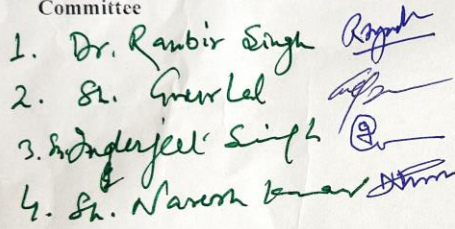 Committee
1. Dr. Ranbir Singh
2. Sh. Gurv Lal
3. Sh. Inderjeet Singh
4. Sh. Naresh Kumar